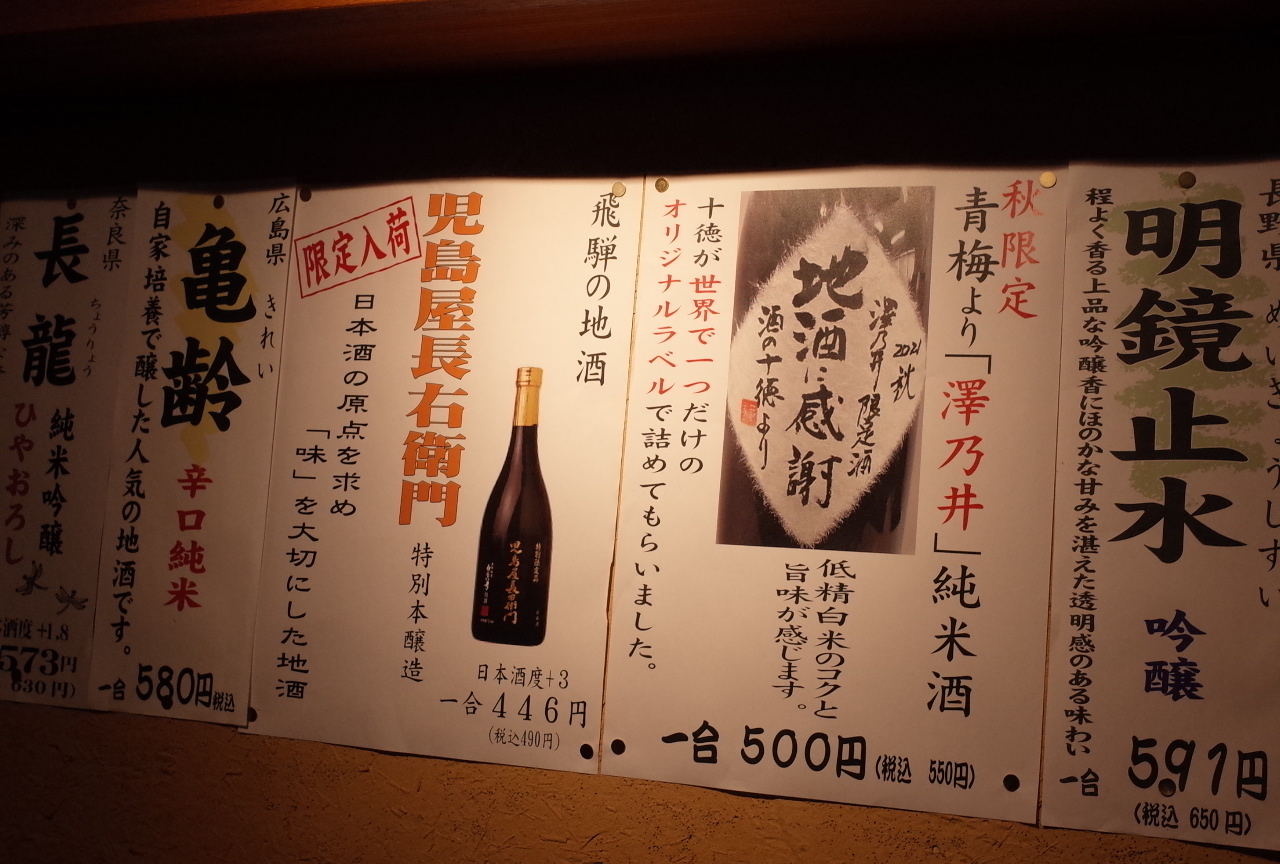 長野県
明鏡止水
吟醸
程よく香る上品な吟醸香にほのかな甘みを湛えた透明感のある味わい
一合
591円
(税込 650円)
秋限定
青梅より「澤乃井」純米酒
2021 秋
澤乃井 限定酒
地酒に感謝
酒の十徳より
低精白米のコクと
旨味が感じます。
十徳が世界で一つだけの
オリジナルラベルで詰めてもらいました。
一合 500円(税込 550円)
飛騨の地酒
児島屋長右衛門
特別本醸造
限定入荷
日本酒の原点を求め
「味」を大切にした地酒
児島屋長右衛門
日本酒度+3
一合446円
(税込490円)
広島県
きれい
亀齢
辛口純米
自家培養で醸した人気の地酒です。
一合 580円税込
奈良県
ちょうりょう
長龍
純米吟醸
ひやおろし
深みのある
酒度+1.8
573円
630円)